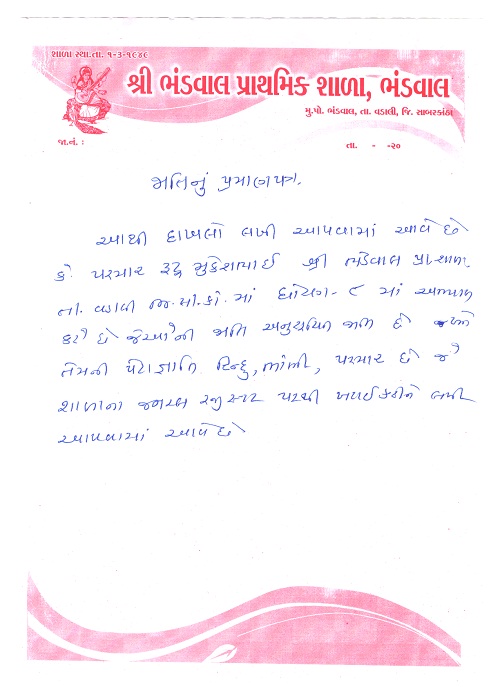 શાળા સ્થા.તા. ૧-૩-૧૯૪૯
શ્રી ભંડવાલ પ્રાથમિક શાળા, ભંડવાલ
મુ.પો. ભંડવાલ, તા. વડાલી, જિ. સાબરકાંઠા
જા.નં. :
તા. - -૨૦
જાતિનું પ્રમાણપત્ર.
આથી દાખલો લખી આપવામાં આવે છે
કે પરમાર રૂદ્ર મુકેશભાઈ શ્રી ભંડવાલ પ્રા.શાળા
તા. વડાલી જી.સા.કાં. માં ધોરણ - ૮ માં અભ્યાસ
કરે છે જેઓની જાતિ અનુસૂચિત જાતિ છે
તેમની પેટાજ્ઞાતિ હિન્દુ, ભાંભી, પરમાર છે જે
શાળાના જનરલ રજીસ્ટર પરથી ખરાઈ કરીને લખી
આપવામાં આવે છે